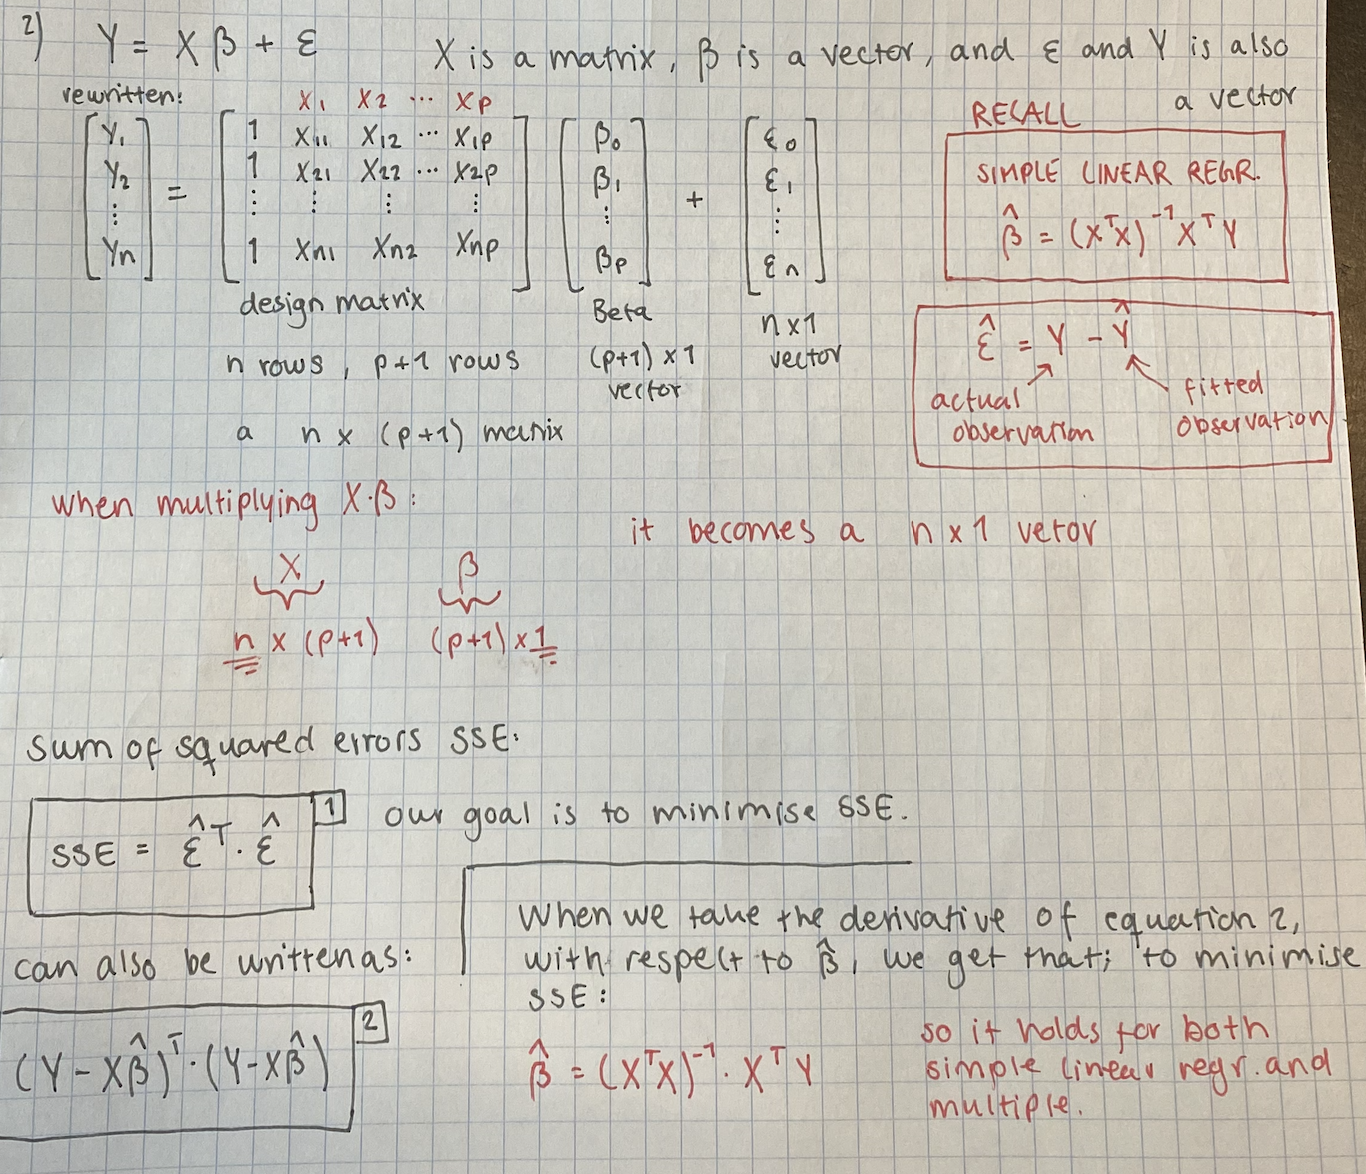 2) Y = Xβ + ε X is a matrix, β is a vector, and ε and Y is also
a vector
rewritten:
X₁ X₂ ⋯ Xp
[Y₁ Y₂ ⋮ Yn] = [1 X₁₁ X₁₂ ⋯ X₁p
1 X₂₁ X₂₂ ⋯ X₂p
⋮ ⋮ ⋮ ⋮
1 Xn₁ Xn₂ Xnp] [β₀ β₁ ⋮ βp] + [ε₀ ε₁ ⋮ εn]
design matrix
n rows, p+1 rows
a n x (p+1) matrix
Beta
(p+1) x 1
vector
n x 1
vector
RECALL
SIMPLE LINEAR REGR.
β̂ = (XᵀX)⁻¹XᵀY
ε̂ = Y - Ŷ
actual
observation
fitted
observation
when multiplying X·β:
it becomes a n x 1 vetor
X β
n x (p+1) (p+1) x 1
sum of squared errors SSE:
SSE = ε̂ᵀ · ε̂ 1
our goal is to minimise SSE.
can also be written as:
(Y - Xβ̂)ᵀ · (Y - Xβ̂) 2
When we take the derivative of equation 2,
with respect to β̂, we get that; to minimise
SSE:
β̂ = (XᵀX)⁻¹ · XᵀY
so it holds for both
simple linear regr. and
multiple.